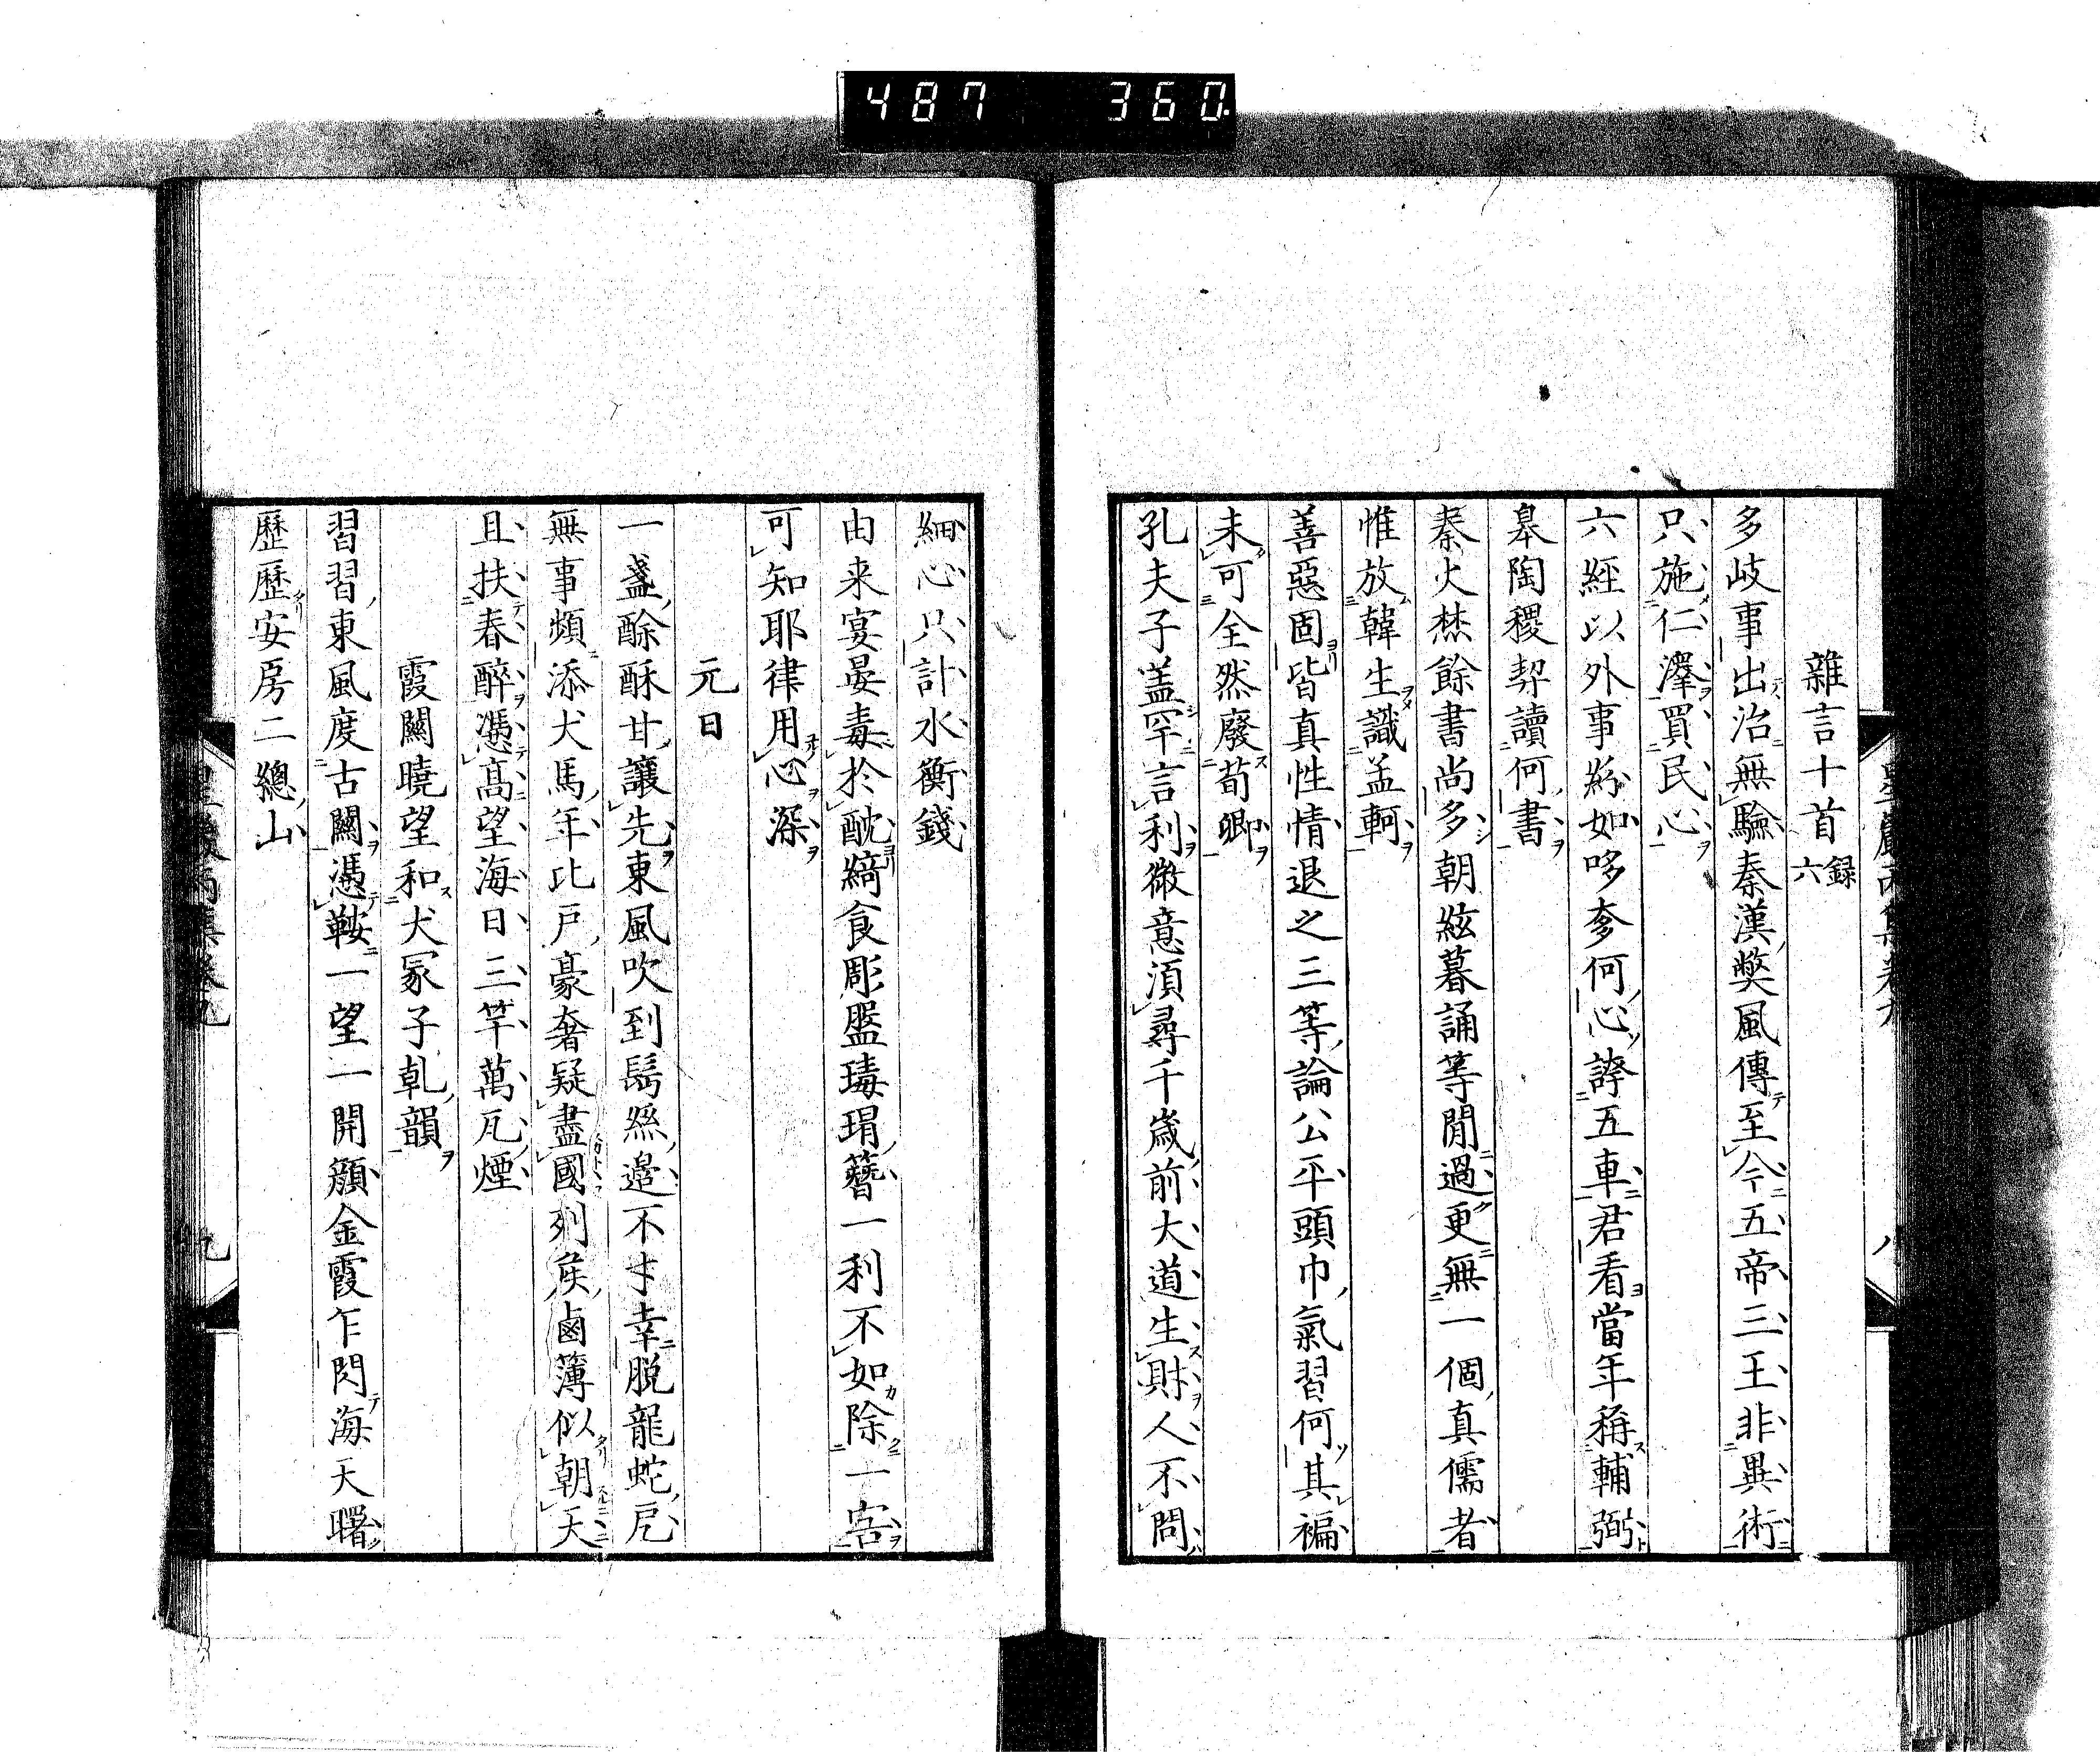 487 360
雜言十首 録六
多岐事出治無驗秦漢獘風傳至今五帝三王非異術
只施仁澤買民心
六經以外事紛如哆奓何心誇五車君看當年稱輔弼
皋陶稷契讀何書
秦火焚餘書尚多朝絃暮誦等閒過更無一個真儒者
惟放韓生識孟軻
善惡固皆真性情退之三等論公平頭巾氣習何其褊
未可全然廢荀卿
孔夫子盖罕言利微意須尋千歳前大道生財人不問
細心只計水衡錢
由来宴晏毒於酖綺食彫盤瑇瑁簪一利不如除一害
可知耶律用心深
元日
一盞酴酥甘讓先東風吹到鬂絲邉不才幸脱龍蛇戹
無事頻添犬馬年比戸豪奢疑盡國列矦鹵簿似朝天
且扶春醉憑髙望海日三竿萬瓦煙
霞關曉望和犬冢子乹韻
習習東風度古關憑鞍一望一開顔金霞乍閃海天曙
歷歷安房二總山